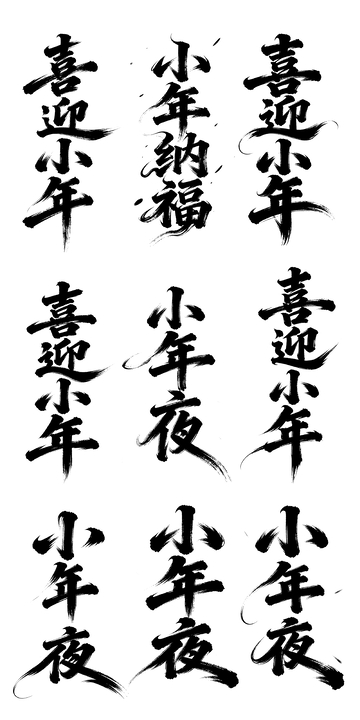 喜迎小年
小年納福
喜迎小年
喜迎小年
小年夜
喜迎小年
小年夜
小年夜
小年夜